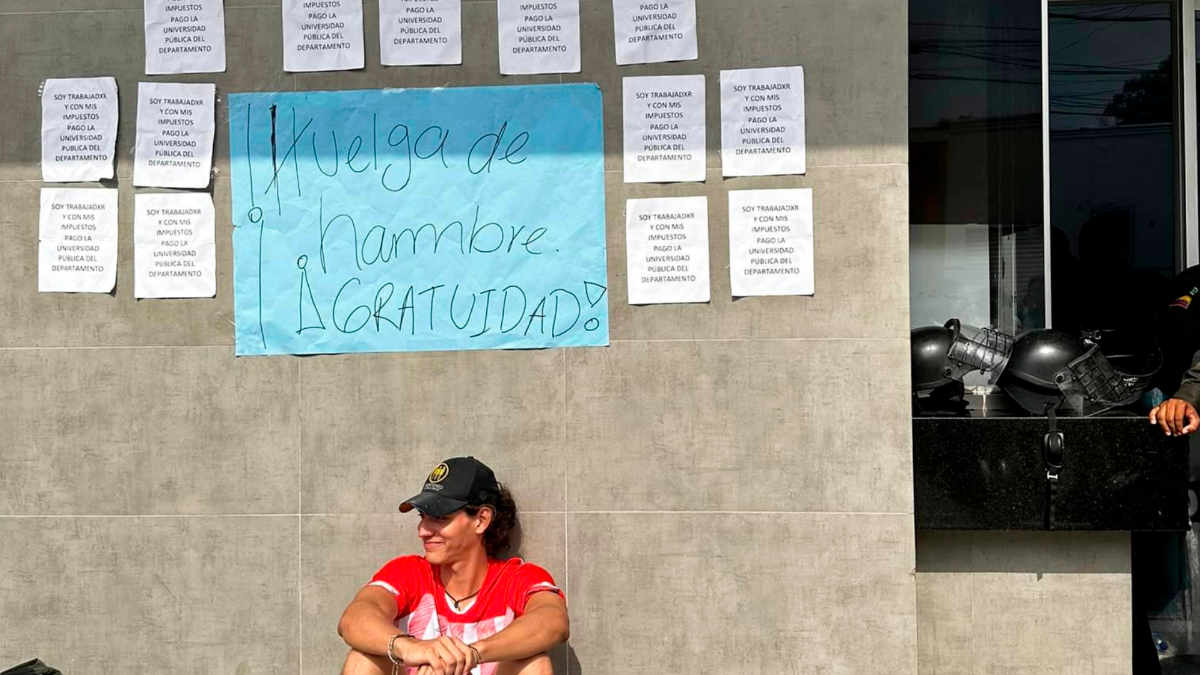 IMPUESTOS
PAGO LA
UNIVERSIDAD
PÚBLICA DEL
DEPARTAMENTO
IMPUESTOS
PAGO LA
UNIVERSIDAD
PÚBLICA DEL
DEPARTAMENTO
IMPUESTOS
PAGO LA
UNIVERSIDAD
PÚBLICA DEL
DEPARTAMENTO
IMPUESTOS
PAGO LA
UNIVERSIDAD
PÚBLICA DEL
DEPARTAMENTO
IMPUESTOS
PAGO LA
UNIVERSIDAD
PÚBLICA DEL
DEPARTAMENTO
SOY TRABAJADXR
Y CON MIS
IMPUESTOS
PAGO LA
UNIVERSIDAD
PÚBLICA DEL
DEPARTAMENTO
SOY TRABAJADXR
Y CON MIS
IMPUESTOS
PAGO LA
UNIVERSIDAD
PÚBLICA DEL
DEPARTAMENTO
Huelga de
hambre.
¡GRATUIDAD!
SOY TRABAJADXR
Y CON MIS
IMPUESTOS
PAGO LA
UNIVERSIDAD
PÚBLICA DEL
DEPARTAMENTO
SOY TRABAJADXR
Y CON MIS
IMPUESTOS
PAGO LA
UNIVERSIDAD
PÚBLICA DEL
DEPARTAMENTO
SOY TRABAJADXR
Y CON MIS
IMPUESTOS
PAGO LA
UNIVERSIDAD
PÚBLICA DEL
DEPARTAMENTO
SOY TRABAJADXR
Y CON MIS
IMPUESTOS
PAGO LA
UNIVERSIDAD
PÚBLICA DEL
DEPARTAMENTO
SOY TRABAJADXR
Y CON MIS
IMPUESTOS
PAGO LA
UNIVERSIDAD
PÚBLICA DEL
DEPARTAMENTO
SOY TRABAJADXR
Y CON MIS
IMPUESTOS
PAGO LA
UNIVERSIDAD
PÚBLICA DEL
DEPARTAMENTO